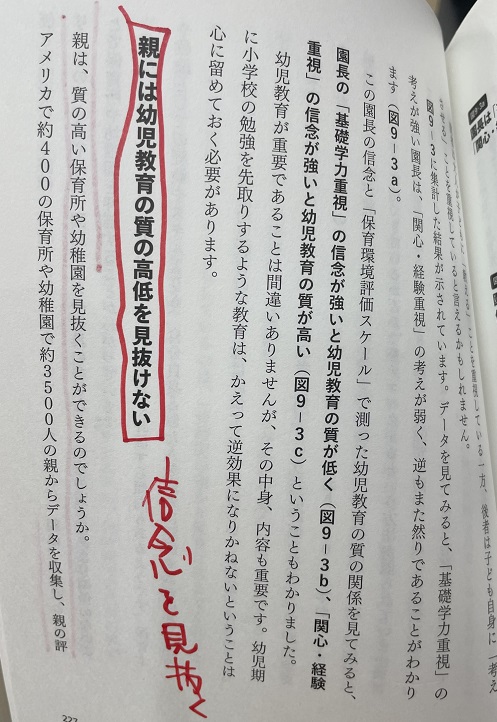 させる」ことを重視していると言えるかもしれません。
図9-3に集計した結果が示されています。データを見てみると、「基礎学力重視」の
考えが強い園長は、「関心・経験重視」の考えが弱く、逆もまた然りであることがわかり
ます（図9-3a）。
この園長の信念と「保育環境評価スケール」で測った幼児教育の質の関係を見てみると、
園長の「基礎学力重視」の信念が強いと幼児教育の質が低く（図9-3b）、「関心・経験
重視」の信念が強いと幼児教育の質が高い（図9-3c）ということもわかりました。
幼児教育が重要であることは間違いありませんが、その中身、内容も重要です。幼児期
に小学校の勉強を先取りするような教育は、かえって逆効果になりかねないということは
心に留めておく必要があります。
親には幼児教育の質の高低を見抜けない
信念を見抜く
親は、質の高い保育所や幼稚園を見抜くことができるのでしょうか。
アメリカで約400の保育所や幼稚園で約3500人の親からデータを収集し、親の評